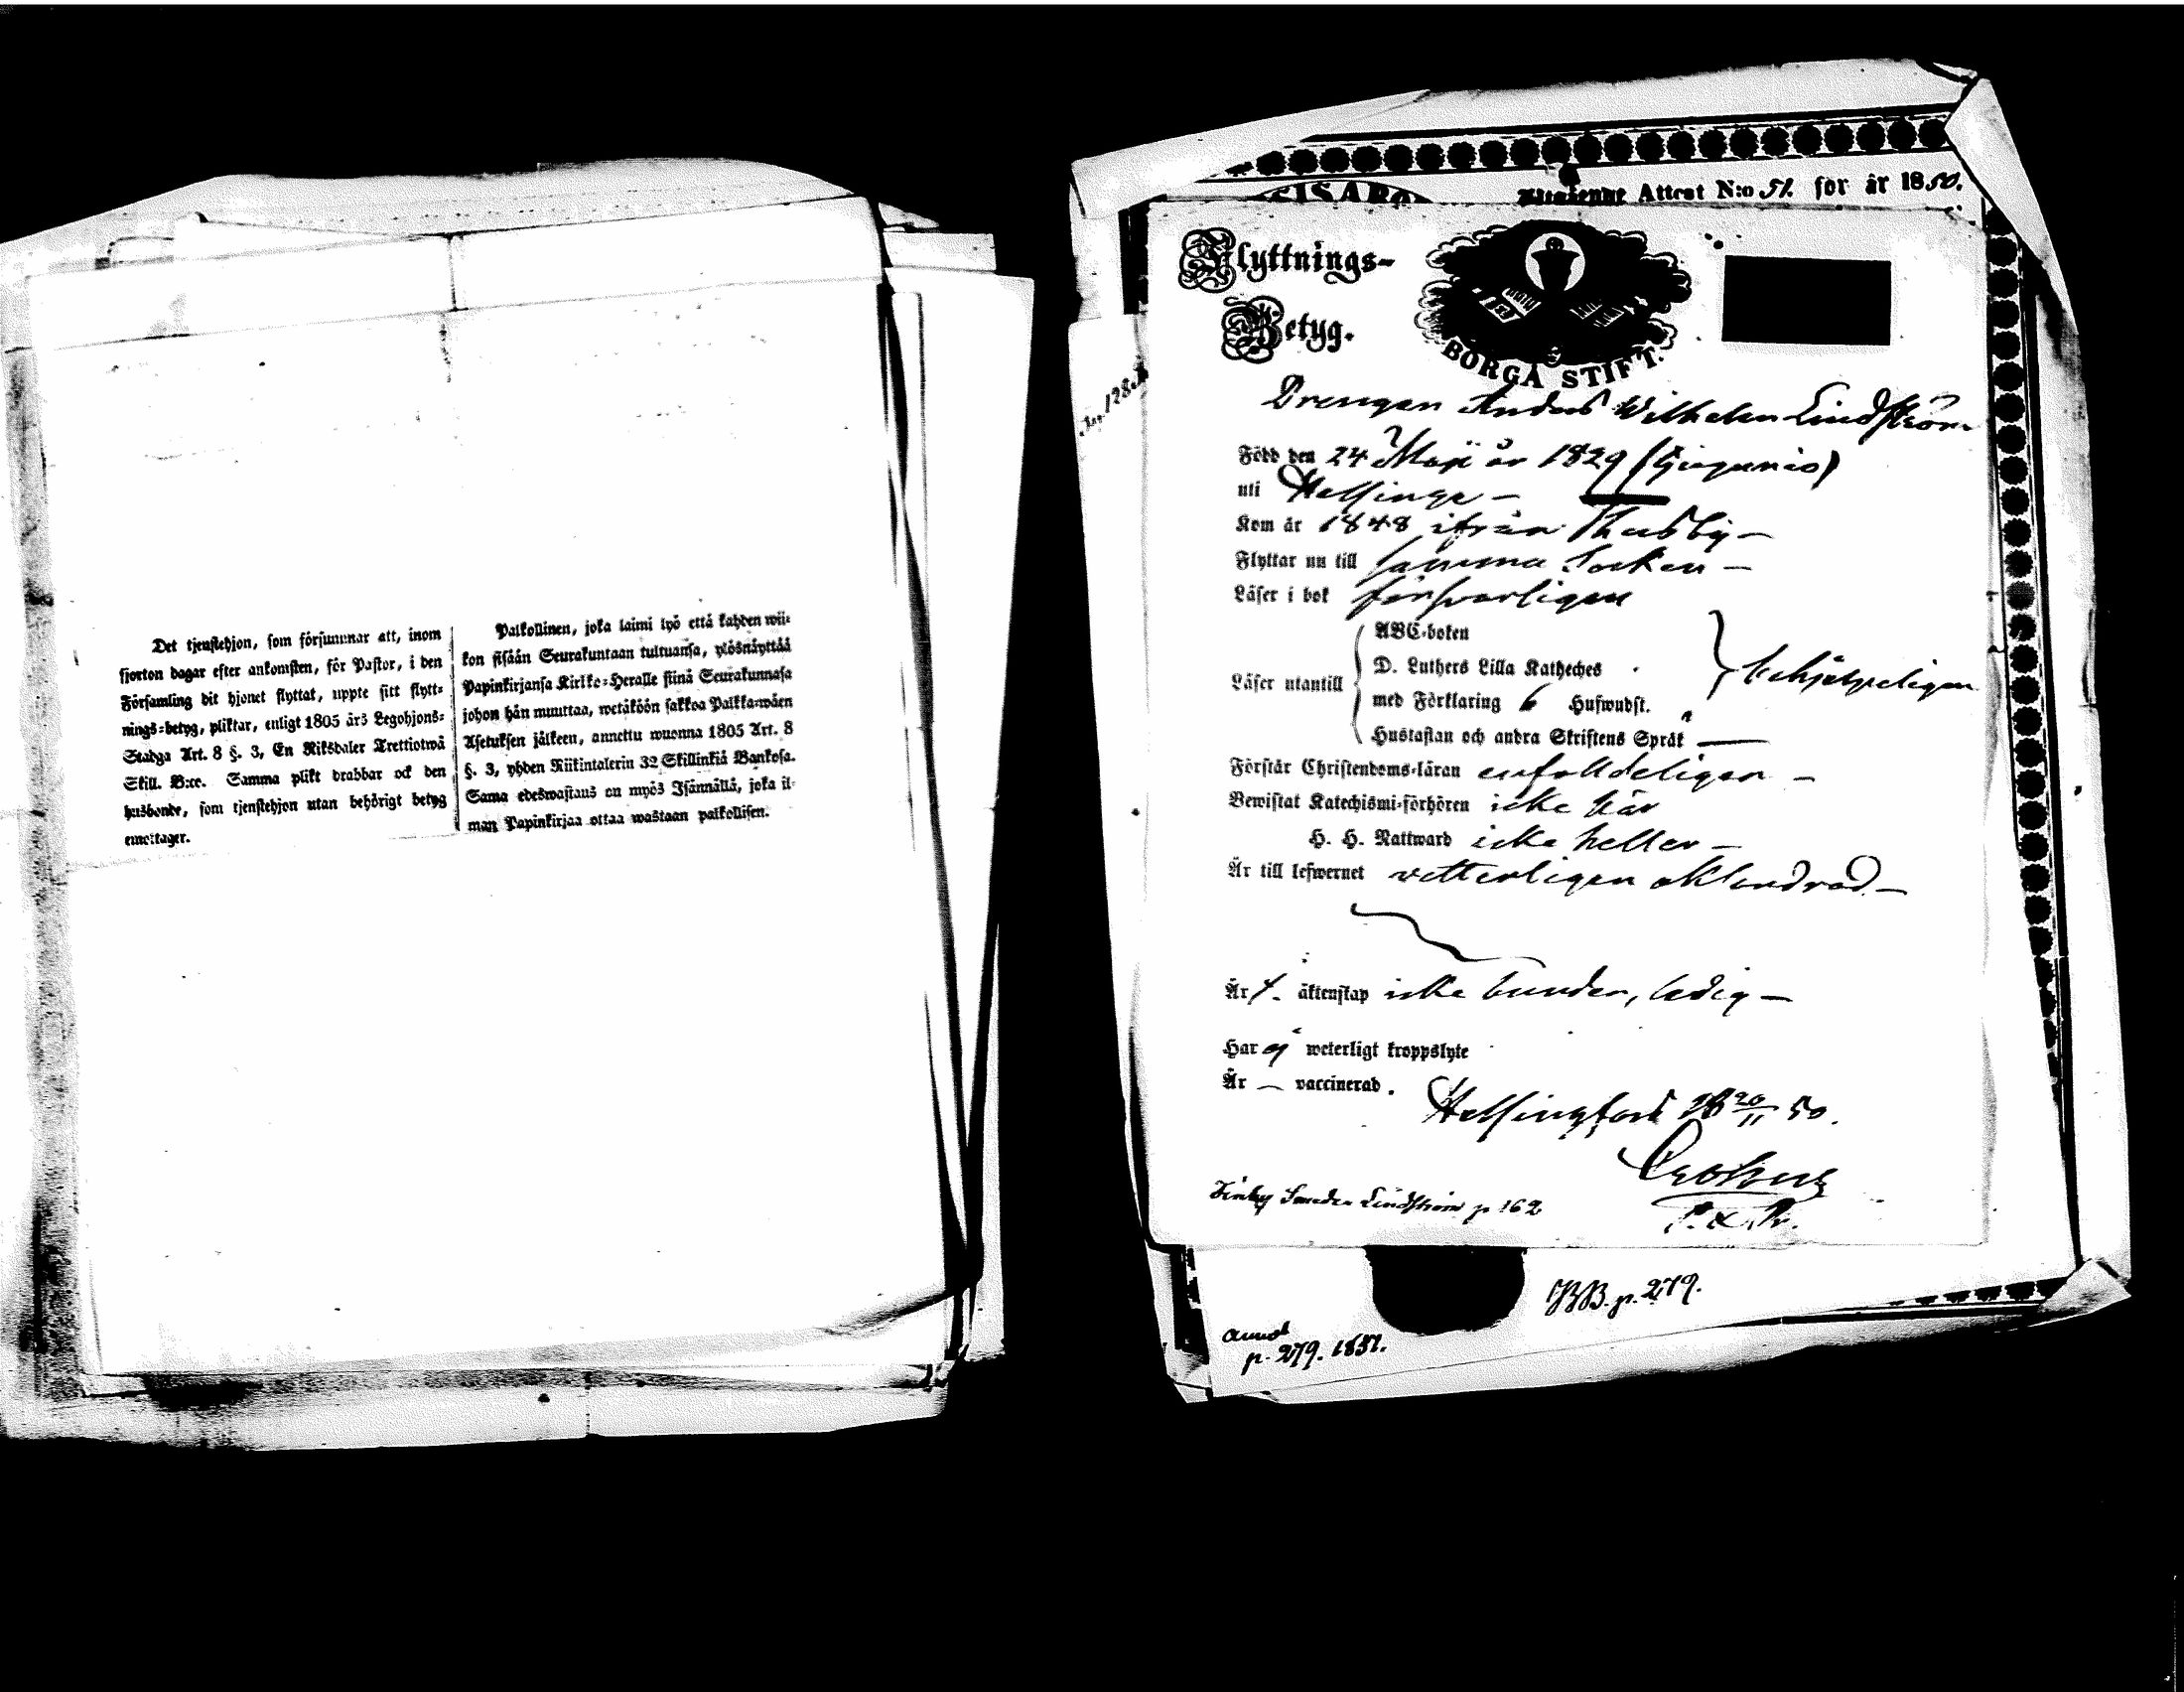 Det tjenstehjon, som försummar att, inom
fjorton dagar efter ankomsten, för Pastor, i den
Församling dit hjonet flyttat, uppte sitt flytt-
nings-betyg, pliktar, enligt 1805 års Legohjons-
Stadga Art. 8 §. 3, En Riksdaler Trettiotwå
Skill. B:co. Samma plikt drabbar ock den
husbonde, som tjenstehjon utan behörigt betyg
emottager.
Palkollinen, joka laimi lyö että kahden wii-
kon sisään Seurakuntaan tultuansa, ylösnäyttää
Papinkirjansa Kirkko-Heralle siinä Seurakunnasa
johon hän muuttaa, wetäköön sakkoa Palkka-wäen
Asetuksen jälkeen, annettu wuonna 1805 Art. 8
§. 3, yhden Riikintalerin 32 Skillinkiä Bankosa.
Sama edeswastaus on myös Isännällä, joka il-
man Papinkirjaa ottaa wastaan palkollisen.
Attest N:o 51. för år 1850.
Flyttnings-
Betyg.
BORGÅ STIFT.
Drengen Anders Wilhelm Lindström
Född den 24 Maji år 1829
uti Helsinge –
Kom år 1848 ifrån Thusby –
Flyttar nu till samma Socken –
Läser i bok försvarligen
Läser utantill
ABC-boken
D. Luthers Lilla Katheches
med Förklaring 6 Huswudst.
Hustaflan och andra Skriftens Språk —
Förstår Christendoms-läran enfalldeligen –
Bewistat Katechismi-förhören icke här
H. H. Nattward icke heller –
Är till lefwernet vetterligen oklandrad –
Är t. äktenskap icke bunden, ledig –
Har ej weterligt kroppslyte
Är — vaccinerad.
Helsingfors 18 20/11 50.
Smeden Lindström p 162
BB. p. 279.
p. 279. 1851.